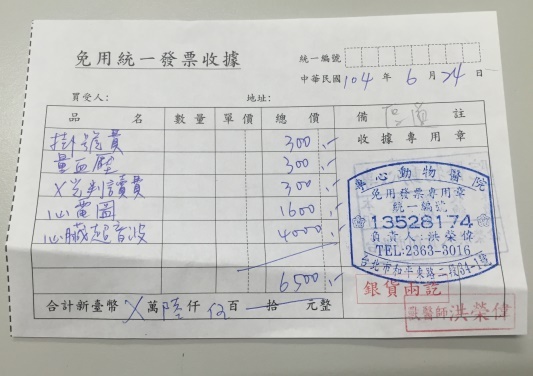 免用統一發票收據
統一編號
中華民國 104 年 6 月 24 日
買受人: 地址:
品名 數量 單價 總價 備註
收據專用章
掛號費 300.-
量血壓 300.-
X光判讀費 300.-
心電圖 1600.-
心臟超音波 4000.-
6500.-
合計新臺幣 X 萬 陸 仟 伍 百 拾 元整
專心動物醫院
免用發票專用章
統一編號
13528174
負責人:洪榮偉
TEL:2363-3016
台北市和平東路二段34-1號
銀貨兩訖
獸醫師 洪榮偉